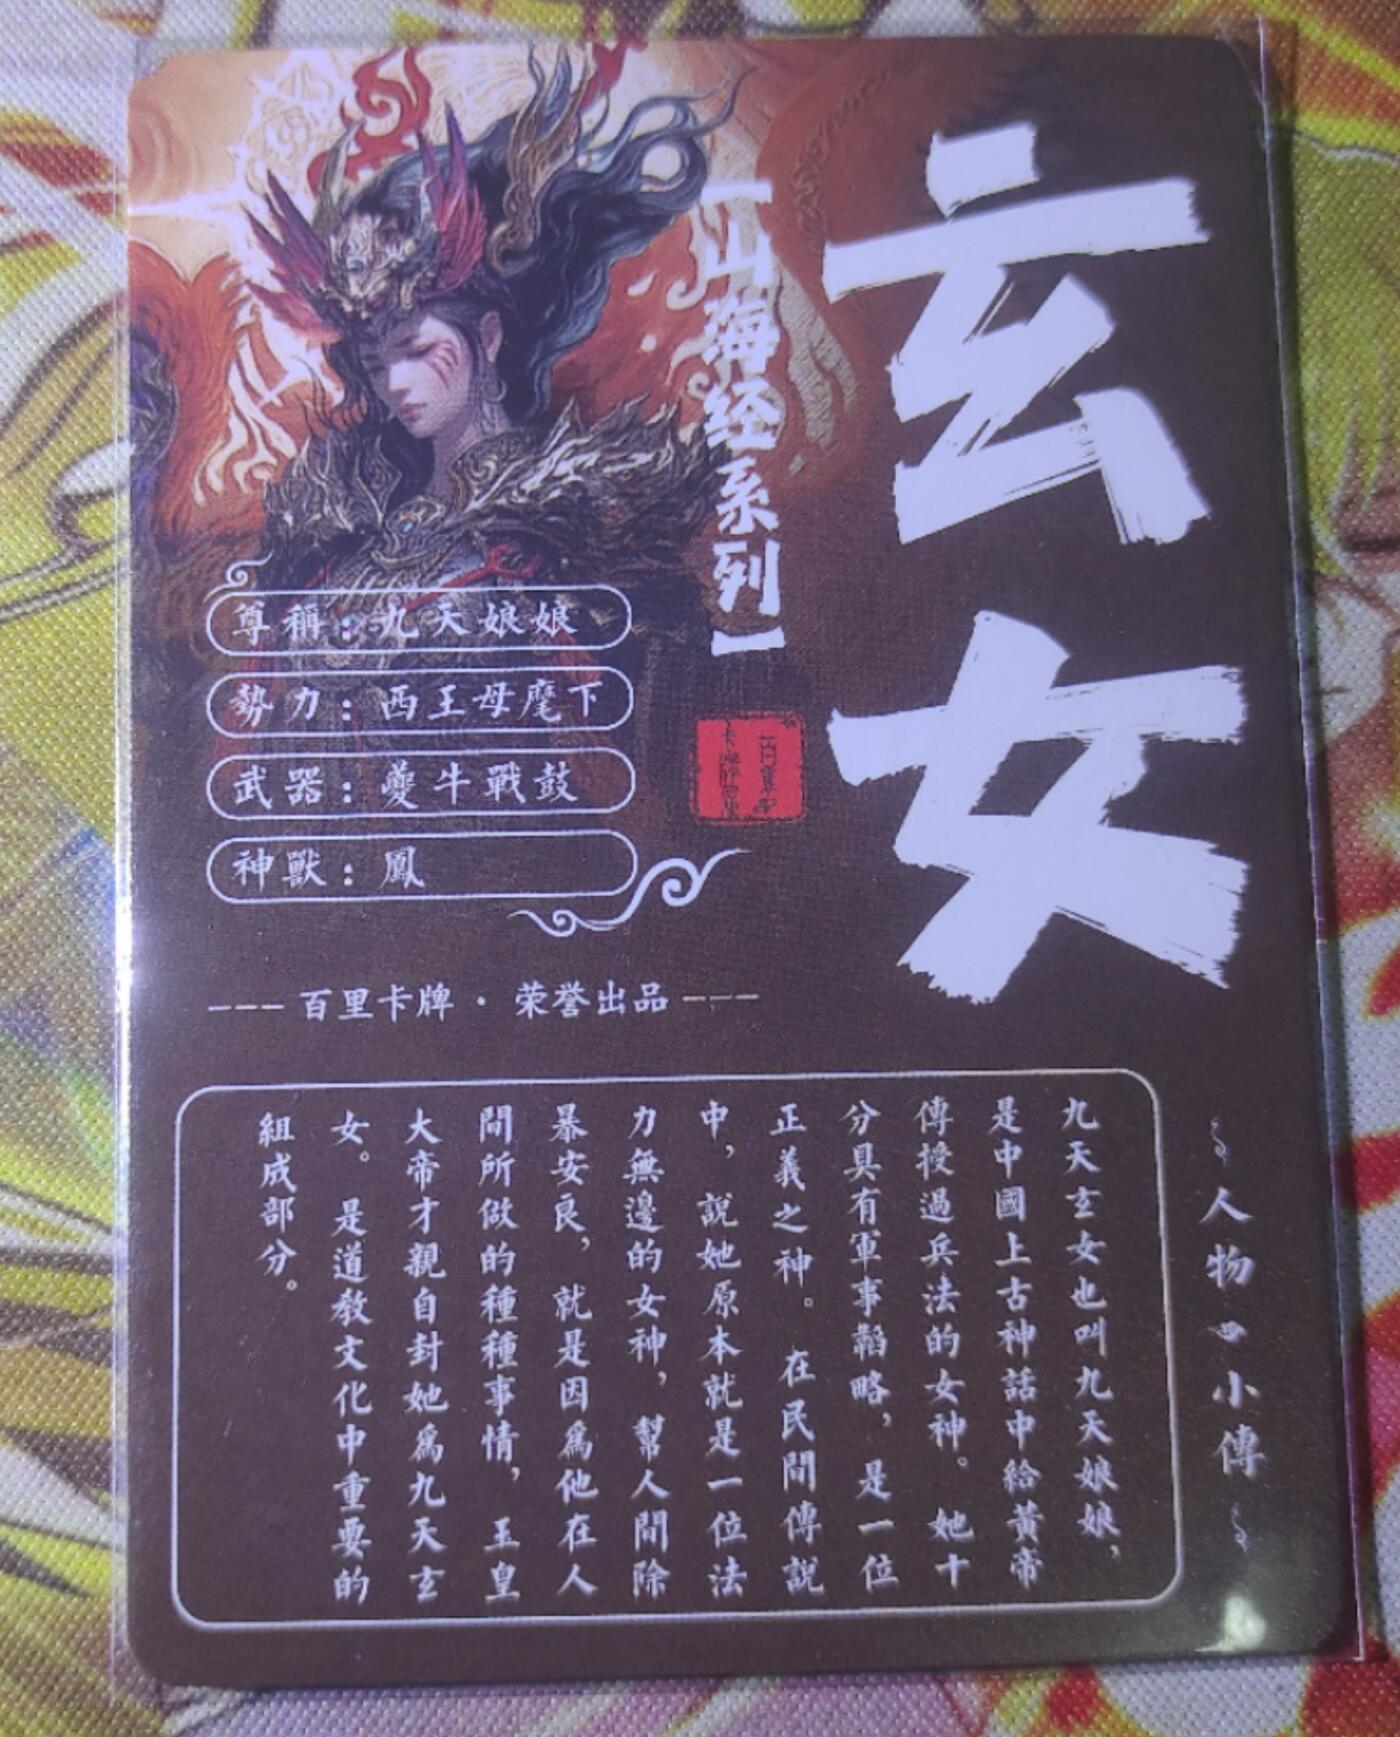 玄女
【山海经系列】
尊稱：九天娘娘
勢力：西王母麾下
武器：夔牛戰鼓
神獸：鳳
---百里卡牌·荣誉出品---
人物小傳
九天玄女也叫九天娘娘，
是中國上古神話中給黃帝
傳授過兵法的女神。她十
分具有軍事韜略，是一位
正義之神。在民間傳說
中，說她原本就是一位法
力無邊的女神，幫人間除
暴安良，就是因爲他在人
間所做的種種事情，玉皇
大帝才親自封她爲九天玄
女。是道教文化中重要的
組成部分。